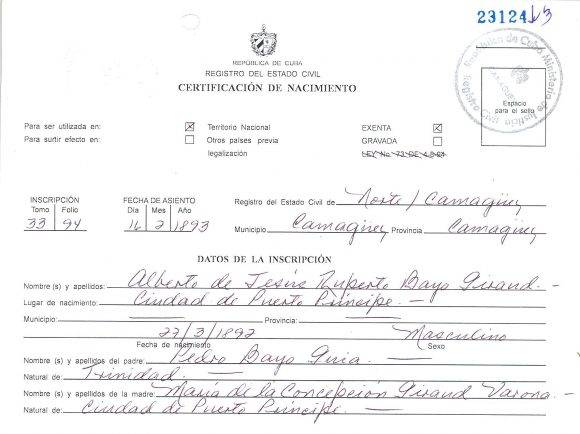 23124
República de Cuba Ministerio de Justicia
Registro Civil
REPÚBLICA DE CUBA
REGISTRO DEL ESTADO CIVIL
CERTIFICACIÓN DE NACIMIENTO
Espacio para el sello
Para ser utilizada en: ☒ Territorio Nacional EXENTA ☒
Para surtir efecto en: ☐ Otros países previa legalización GRAVADA ☐
LEY No. 73 DE 4-8-94
INSCRIPCIÓN FECHA DE ASIENTO Registro del Estado Civil de Norte / Camagüey
Tomo Folio Día Mes Año
33 94 16 2 1893 Municipio Camagüey Provincia Camagüey
DATOS DE LA INSCRIPCIÓN
Nombre(s) y apellidos: Alberto de Jesús Ruperto Bayo Giraud. —
Lugar de nacimiento: Ciudad de Puerto Príncipe. —
Municipio: — Provincia: —
27/3/1892 Masculino
Fecha de nacimiento Sexo
Nombre (s) y apellidos del padre: Pedro Bayo Guia. —
Natural de: Trinidad. —
Nombre (s) y apellidos de la madre: María de la Concepción Giraud Varona. —
Natural de: Ciudad de Puerto Príncipe. —